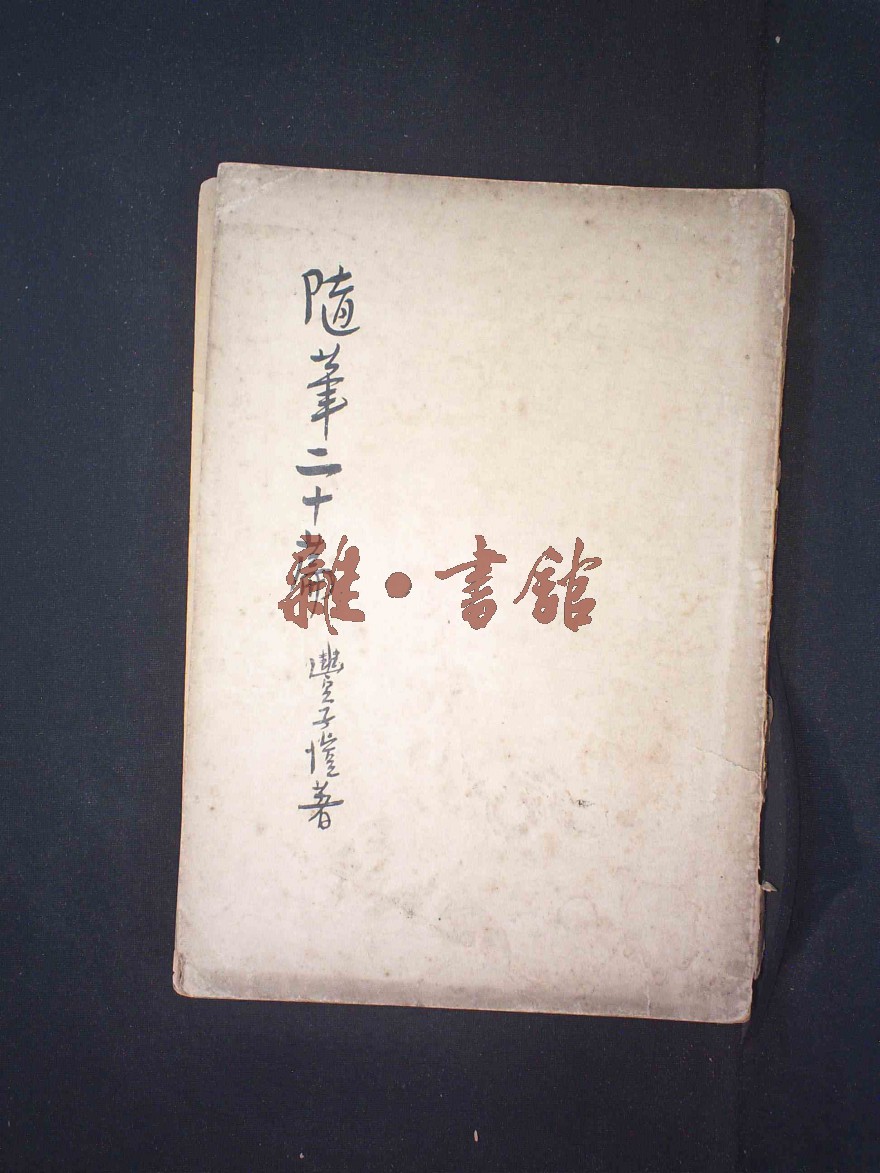 隨筆二十篇
豐子愷著
雜·書館